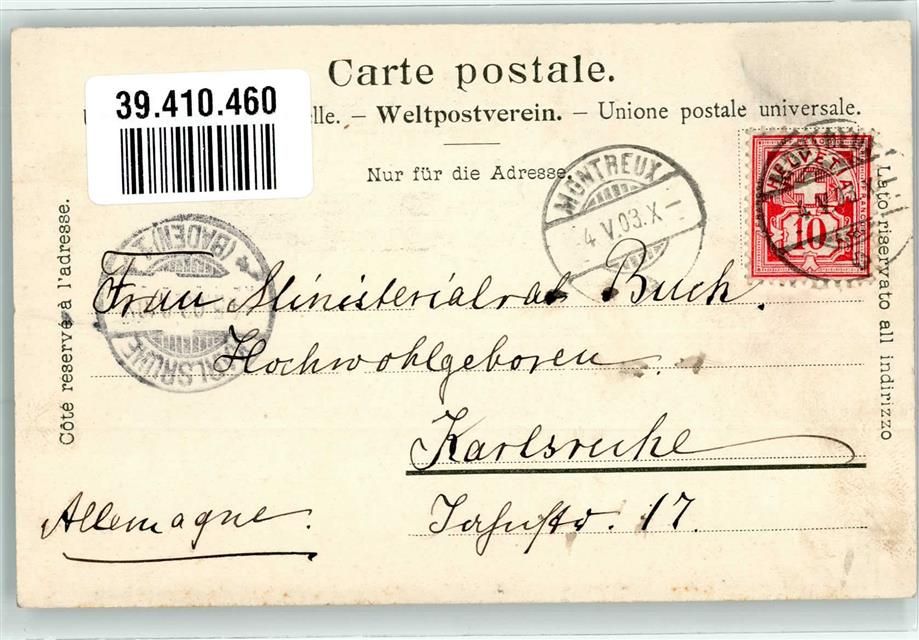 Carte postale.
39.410.460
elle. – Weltpostverein. – Unione postale universale.
Nur für die Adresse.
MONTREUX
4 V 03. X –
HELVETIA
10
Côté reservé à l'adresse.
Lato riservato all indirizzo
(BADEN) 2
KARLSRUHE
Frau Ministerialrat Buch.
Hochwohlgeboren
Karlsruhe
Jahnstr. 17.
Allemagne.